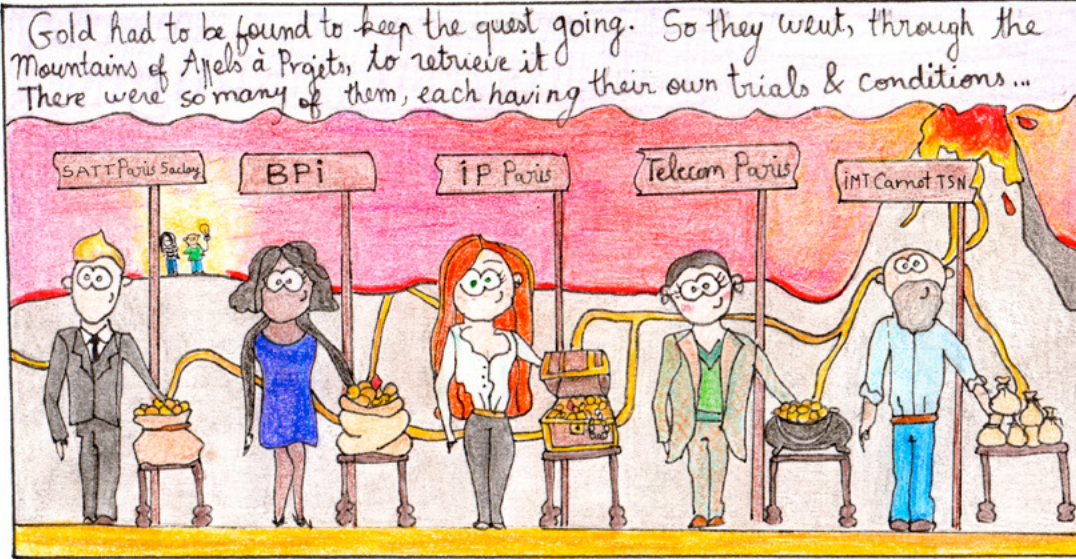 Gold had to be found to keep the quest going. So they went, through the
Mountains of Appels à Projets, to retrieve it
There were so many of them, each having their own trials & conditions...
SATT Paris Saclay
BPi
iP Paris
Telecom Paris
iMT Carnot TSN